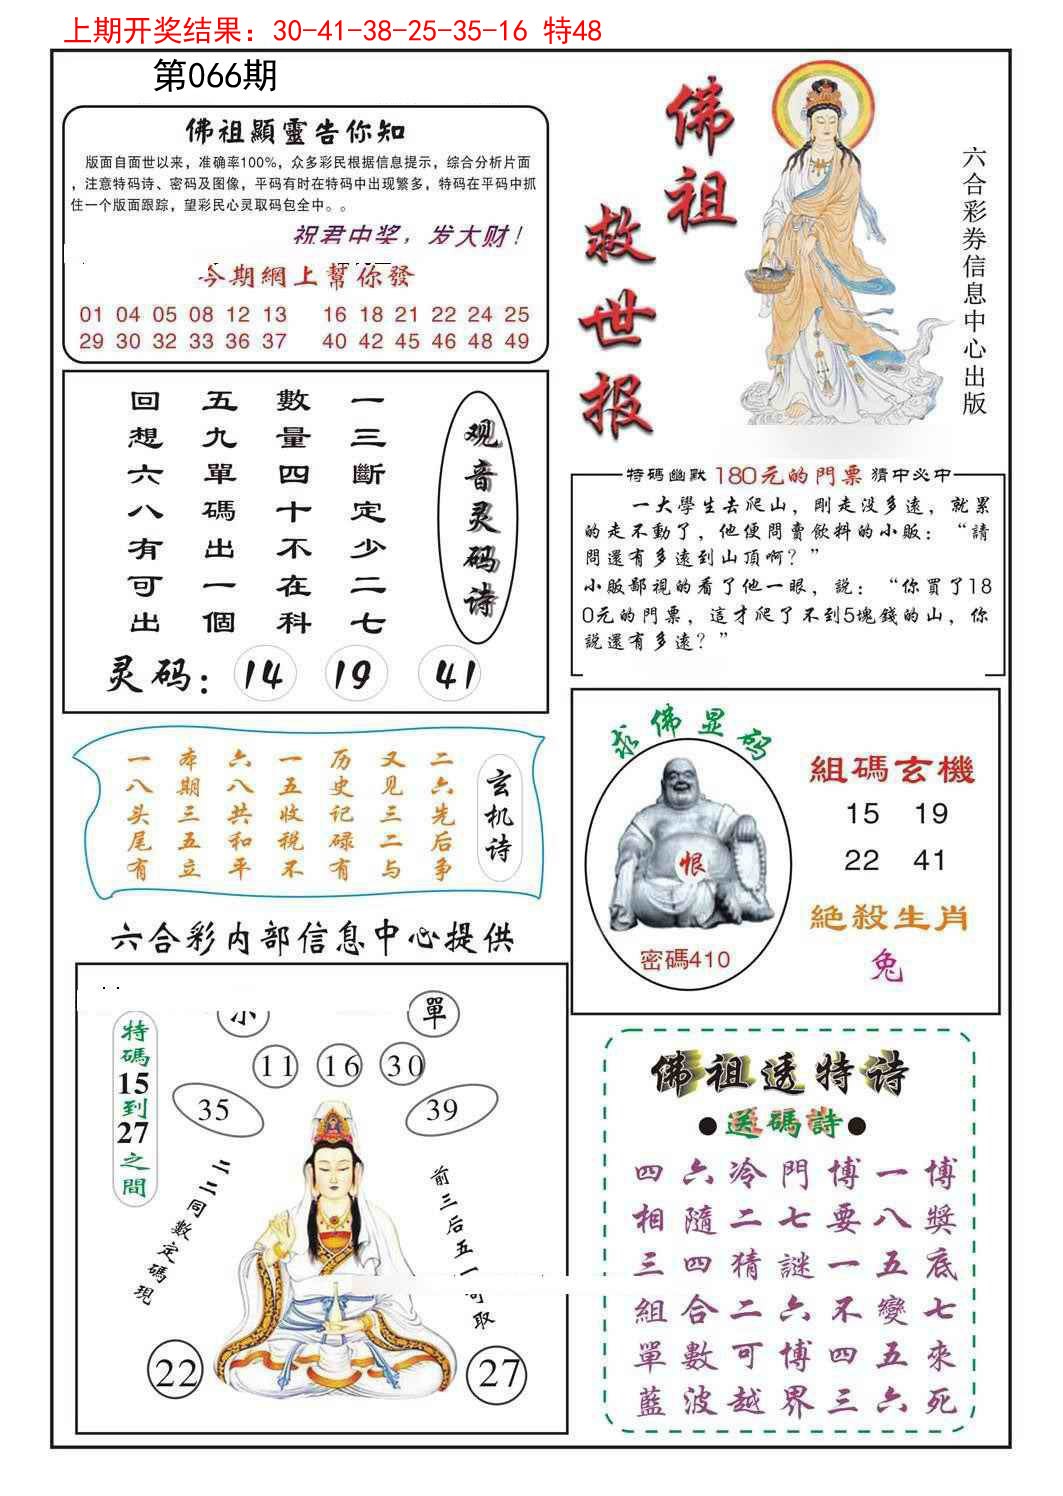 上期开奖结果：30-41-38-25-35-16 特48
第066期
佛祖顯靈告你知
版面自面世以来，准确率100%，众多彩民根据信息提示，综合分析片面
，注意特码诗、密码及图像，平码有时在特码中出现繁多，特码在平码中抓
住一个版面跟踪，望彩民心灵取码包全中。。
祝君中奖，发大财！
今期網上幫你發
01 04 05 08 12 13 16 18 21 22 24 25
29 30 32 33 36 37 40 42 45 46 48 49
佛祖
救世报
六合彩券信息中心出版
观音灵码诗
一三斷定少二七
數量四十不在科
五九單碼出一個
回想六八有可出
灵码：14 19 41
特碼幽默 180元的門票 猜中必中
一大學生去爬山，剛走没多遠，就累
的走不動了，他便問賣飲料的小販：“請
問還有多遠到山頂啊？”
小販鄙視的看了他一眼，説：“你買了18
0元的門票，這才爬了不到5塊錢的山，你
説還有多遠？”
玄机诗
二六先后争
又见三二与
历史记碌有
一五收税不
六八共和平
本期三五立
一八头尾有
求佛显码
恨
密碼410
組碼玄機
15 19
22 41
絶殺生肖
兔
六合彩内部信息中心提供
單
11 16 30
35 39
特碼15到27之間
二二同數定碼現
前三后五一
取
22 27
佛祖透特诗
●送碼詩●
四六冷門博一博
相隨二七要八獎
三四猜謎一五底
組合二六不變七
單數可博四五來
藍波越界三六死